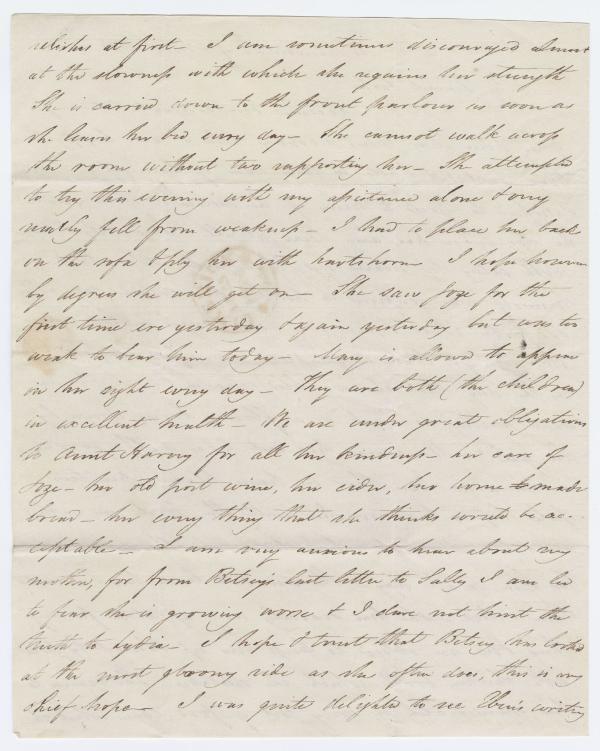 relishes at first – I am sometimes discouraged almost
at the slowness with which she regains her strength
She is carried down to the front parlour as soon as
she leaves her bed every day – She cannot walk across
the room without two supporting her – She attempted
to try this evening with my assistance alone & very
nearly fell from weakness – I had to place her back
on the sofa & ply her with hartshorn I hope however
by degrees she will get on – She saw Joze for the
first time ere yesterday & again yesterday but was too
weak to bear him today – Mary is allowed to appear
in her sight every day – They are both (the children)
in excellent health – We are under great obligations
to Aunt Harvey for all her kindness – her care of
Joze – her old port wine, her cider, her home made
bread – her every thing that she thinks would be ac-
ceptable – I am very anxious to hear about my
mother, for from Betsey's last letter to Sally I am led
to fear she is growing worse & I dare not hint the
truth to Lydia – I hope & trust that Betsey has looked
at the most gloomy side as she often does, this is my
chief hope – I was quite delighted to see Eben's writing